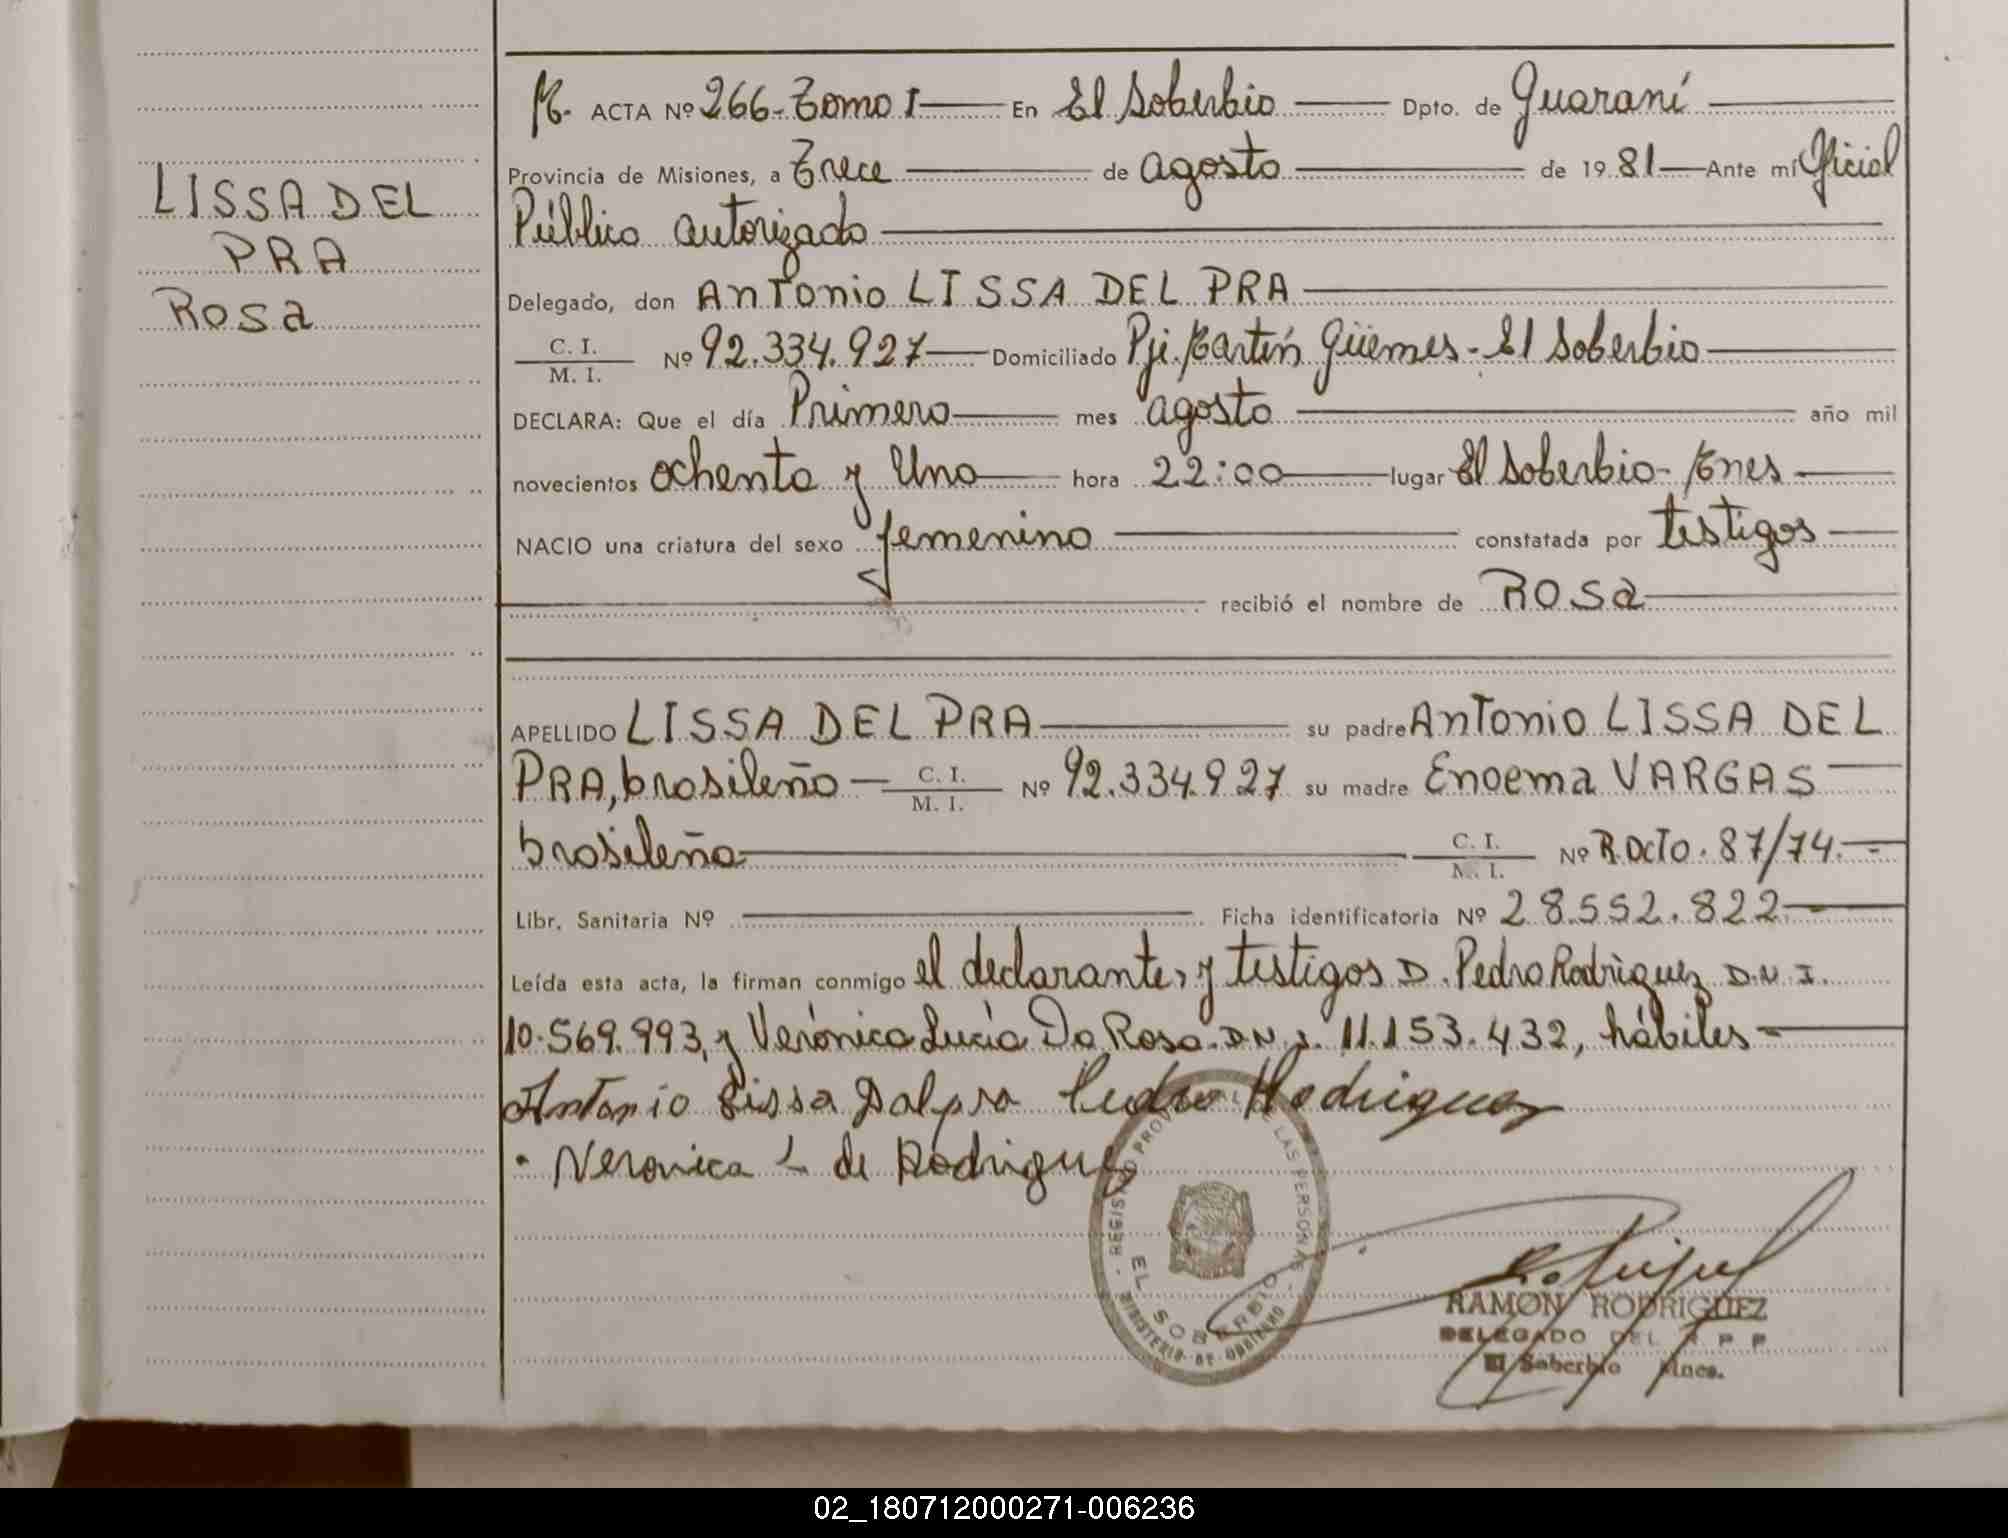 LISSA DEL
PRA
Rosa
M. ACTA Nº 266-Tomo I En El Soberbio Dpto. de Guaraní
Provincia de Misiones, a Trece de agosto de 1981 Ante mí Oficial
Público autorizado
Delegado, don Antonio LISSA DEL PRA
C. I.
M. I. Nº 92.334.927 Domiciliado Pje. Martín Güemes - El Soberbio
DECLARA: Que el día Primero mes agosto año mil
novecientos ochenta y Uno hora 22:00 lugar El Soberbio - Mnes
NACIO una criatura del sexo femenino constatada por testigos
recibió el nombre de Rosa
APELLIDO LISSA DEL PRA su padre Antonio LISSA DEL
PRA, brasileño C. I. M. I. Nº 92.334.927 su madre Enoema VARGAS
brasileña C. I. M. I. Nº R. Octo. 87/74.-
Libr. Sanitaria Nº Ficha identificatoria Nº 28.552.822
Leída esta acta, la firman conmigo el declarante, y testigos D. Pedro Rodriguez D.N.I.
10.569.993, y Verónica Lucía Da Rosa. D.N.I. 11.153.432, hábiles -
Antonio Lissa Dalpra Pedro Rodriguez
Veronica L de Rodriguez
REGISTRO PROVINCIAL DE LAS PERSONAS
EL SOBERBIO
MINISTERIO DE GOBIERNO
RAMON RODRIGUEZ
DELEGADO DEL R P P
El Soberbio Mnes.
02_180712000271-006236